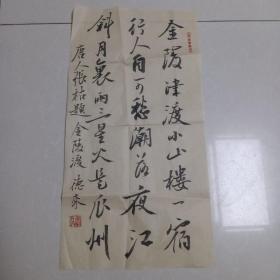 金陵津渡小山楼一宿
行人自可愁潮落夜江
斜月里两三星火是瓜州
唐人张祜题金陵渡 德泉